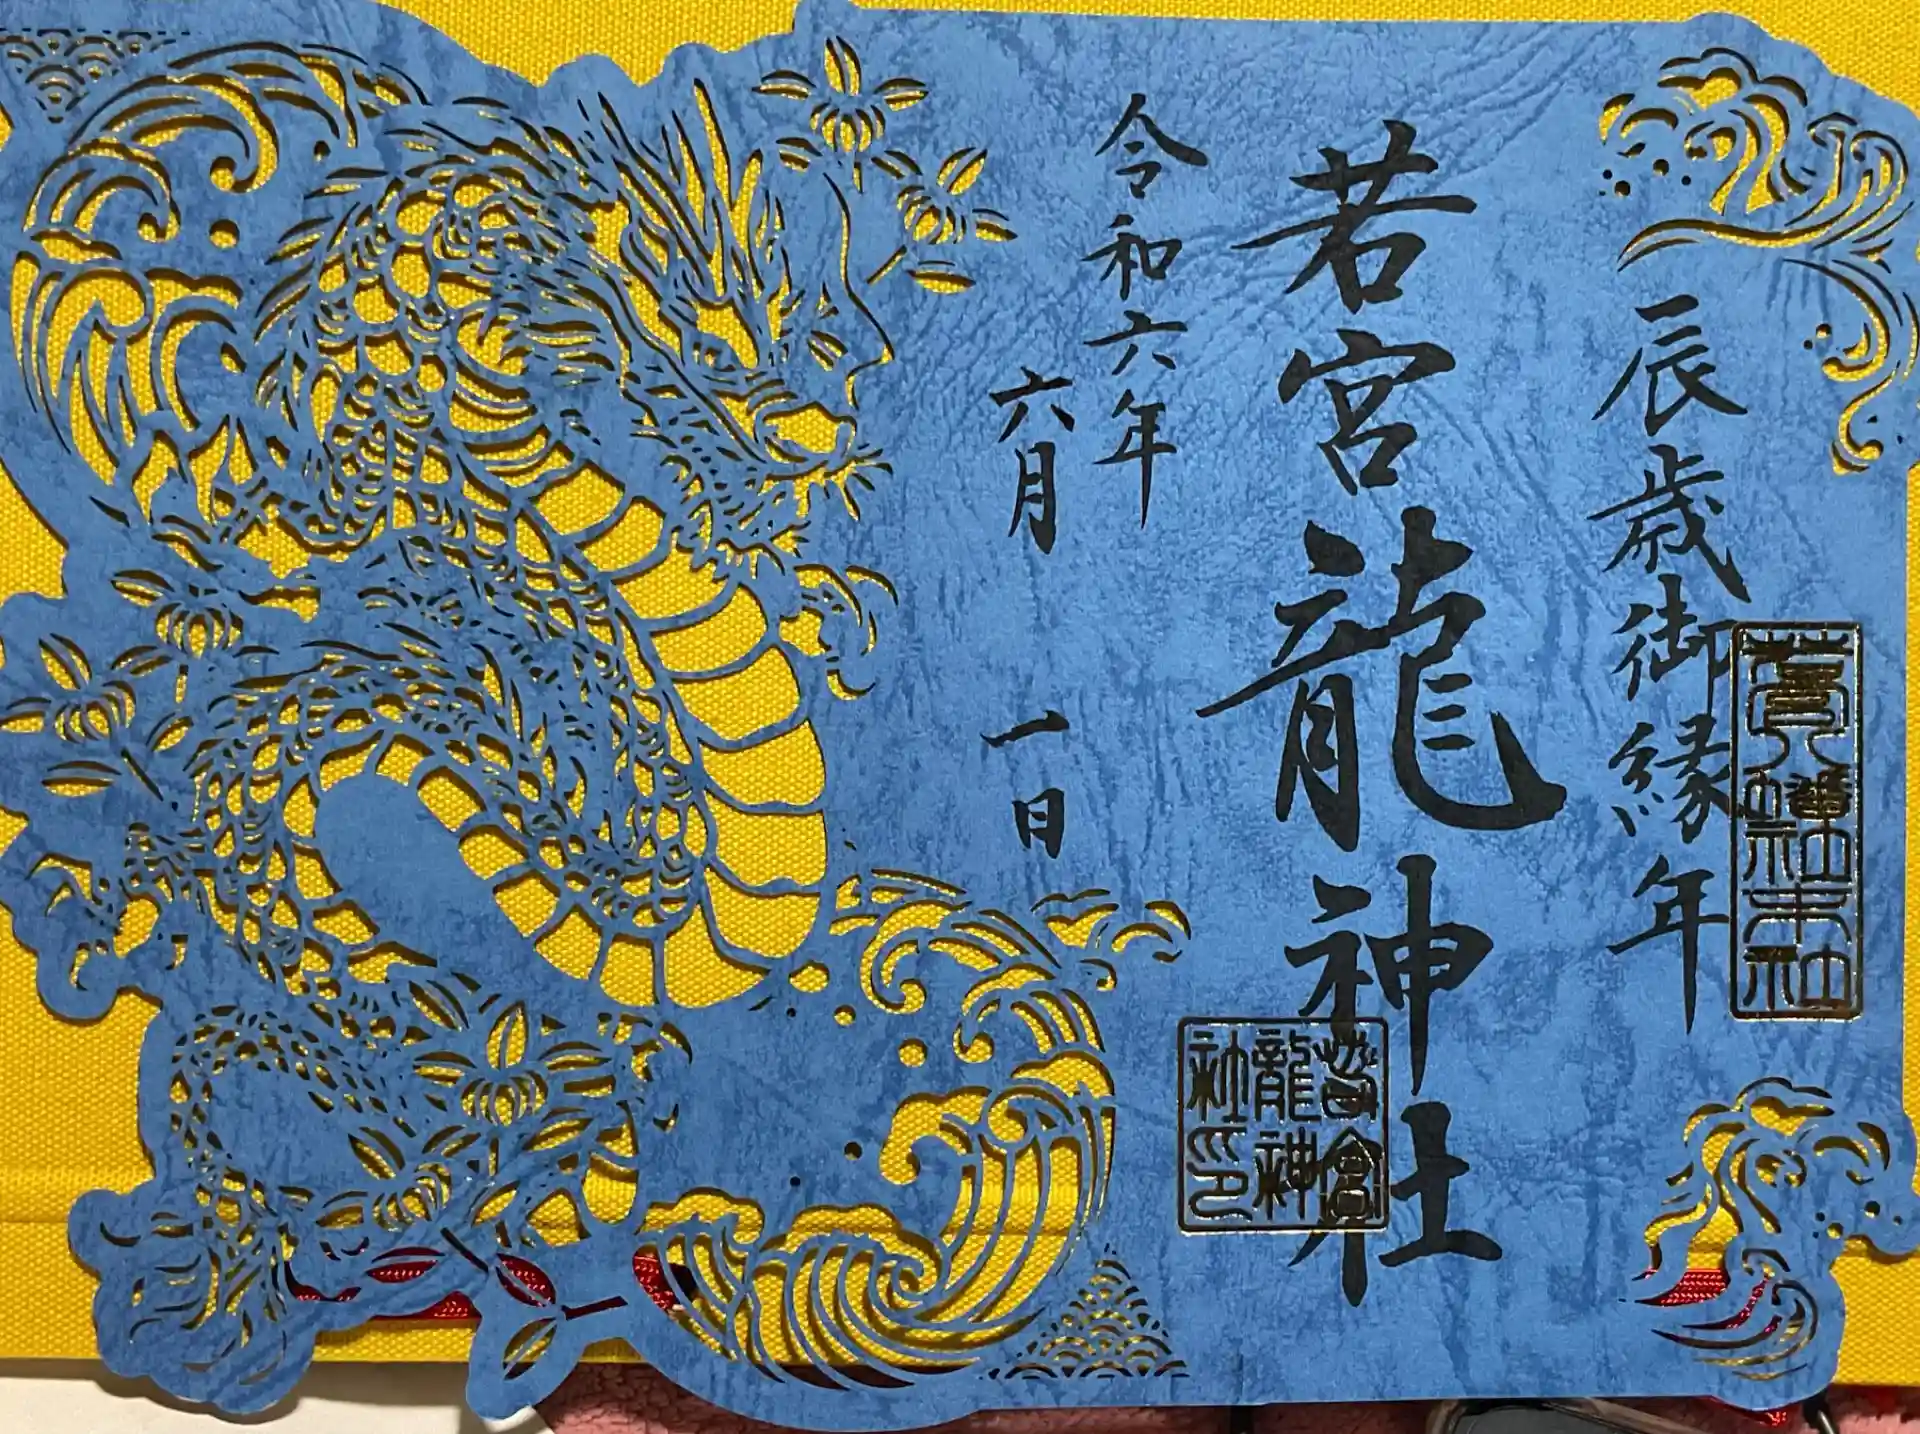 辰歳御縁年
若宮龍神社
令和六年
六月
一日
若宮
龍神
社印